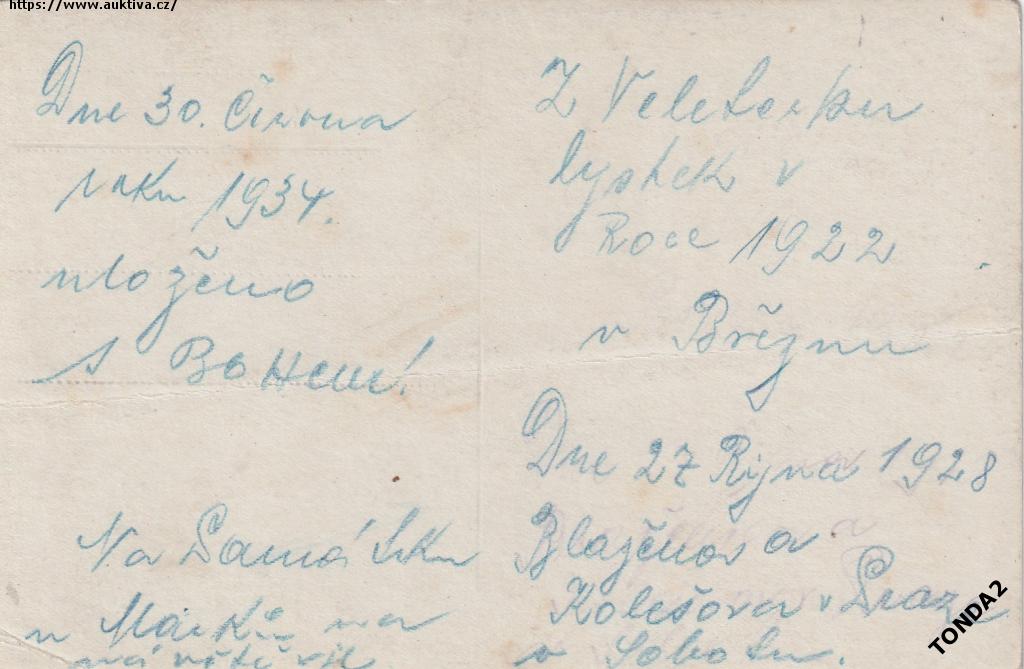 https://www.auktiva.cz/
Dne 30. Června
roku 1934.
uloženo
s Bohem!
Na Památku
u Márků na
návštěvě
Z Veletochu
lystek v
Roce 1922
v Březnu
Dne 27 Rijna 1928
Blažena a
Kolešova v Praze
v Sobotu.
TONDA2